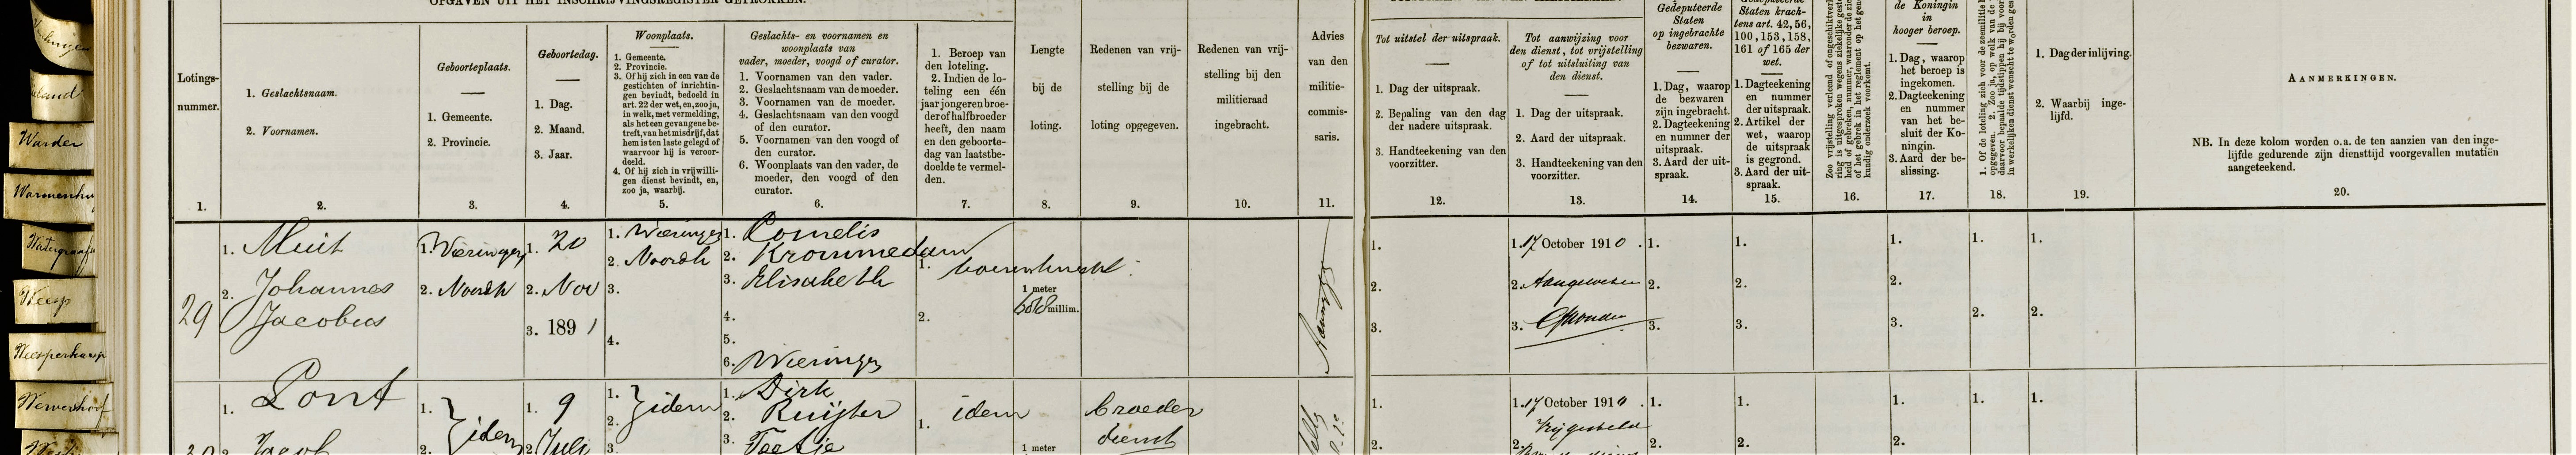 OPGAVEN UIT HET INSCHRIJVINGSREGISTER GETROKKEN.
Warder
Weesp
Weesperkarsp
Lotings-
nummer.
1.
1. Geslachtsnaam.
2. Voornamen.
2.
Geboorteplaats.
1. Gemeente.
2. Provincie.
3.
Geboortedag.
1. Dag.
2. Maand.
3. Jaar.
4.
Woonplaats.
1. Gemeente.
2. Provincie.
3. Of hij zich in een van de
gestichten of inrichtin-
gen bevindt, bedoeld in
art. 22 der wet, en, zoo ja,
in welk, met vermelding,
als het een gevangene be-
treft, van het misdrijf, dat
hem is ten laste gelegd of
waarvoor hij is veroor-
deeld.
4. Of hij zich in vrijwilli-
gen dienst bevindt, en,
zoo ja, waarbij.
5.
Geslachts- en voornamen en
woonplaats van
vader, moeder, voogd of curator.
1. Voornamen van den vader.
2. Geslachtsnaam van de moeder.
3. Voornamen van de moeder.
4. Geslachtsnaam van den voogd
of den curator.
5. Voornamen van den voogd of
den curator.
6. Woonplaats van den vader, de
moeder, den voogd of den
curator.
6.
1. Beroep van
den loteling.
2. Indien de lo-
teling een één
jaar jongeren broe-
der of halfbroeder
heeft, den naam
en den geboorte-
dag van laatstbe-
doelde te vermel-
den.
7.
Lengte
bij de
loting.
8.
Redenen van vrij-
stelling bij de
loting opgegeven.
9.
Redenen van vrij-
stelling bij den
militieraad
ingebracht.
10.
Advies
van den
militie-
commis-
saris.
11.
Tot uitstel der uitspraak.
1. Dag der uitspraak.
2. Bepaling van den dag
der nadere uitspraak.
3. Handteekening van den
voorzitter.
12.
Tot aanwijzing voor
den dienst, tot vrijstelling
of tot uitsluiting van
den dienst.
1. Dag der uitspraak.
2. Aard der uitspraak.
3. Handteekening van den
voorzitter.
13.
Gedeputeerde
Staten
op ingebrachte
bezwaren.
1. Dag, waarop
de bezwaren
zijn ingebracht.
2. Dagteekening
en nummer der
uitspraak.
3. Aard der uit-
spraak.
14.
Gedeputeerde
Staten krach-
tens art. 42, 56,
100, 153, 158,
161 of 165 der
wet.
1. Dagteekening
en nummer
der uitspraak.
2. Artikel der
wet, waarop
de uitspraak
is gegrond.
3. Aard der uit-
spraak.
15.
16.
de Koningin
in
hooger beroep.
1. Dag, waarop
het beroep is
ingekomen.
2. Dagteekening
en nummer
van het be-
sluit der Ko-
ningin.
3. Aard der be-
slissing.
17.
18.
1. Dag der inlijving.
2. Waarbij inge-
lijfd.
19.
AANMERKINGEN.
NB. In deze kolom worden o.a. de ten aanzien van den inge-
lijfde gedurende zijn diensttijd voorgevallen mutatiën
aangeteekend.
20.
29
1. Muit
2. Johannes
Jacobus
1. Wieringen
2. Noordh
1. 20
2. Nov
3. 1891
1. Wieringen
2. Noordh
3.
4.
1. Cornelis
2. Krommedam
3. Elisabeth
4.
5.
6. Wieringen
1. boerenknecht
2.
1 meter
millim.
1.
2.
3.
1. 17 October 1910.
2. Aangewezen
3.
1.
2.
3.
1.
2.
3.
1.
2.
3.
1.
2.
1.
2.
1. Lont
2. Jacob
1. } idem
2.
1. 9
2. Juli
1. } idem
2.
3.
1. Dirk
2. Ruijter
3. Teetje
1. idem
1 meter
broeder
dienst
1.
2.
1. 17 October 1910.
2. Vrijgesteld
1.
2.
1.
2.
1.
2.
1.
1.